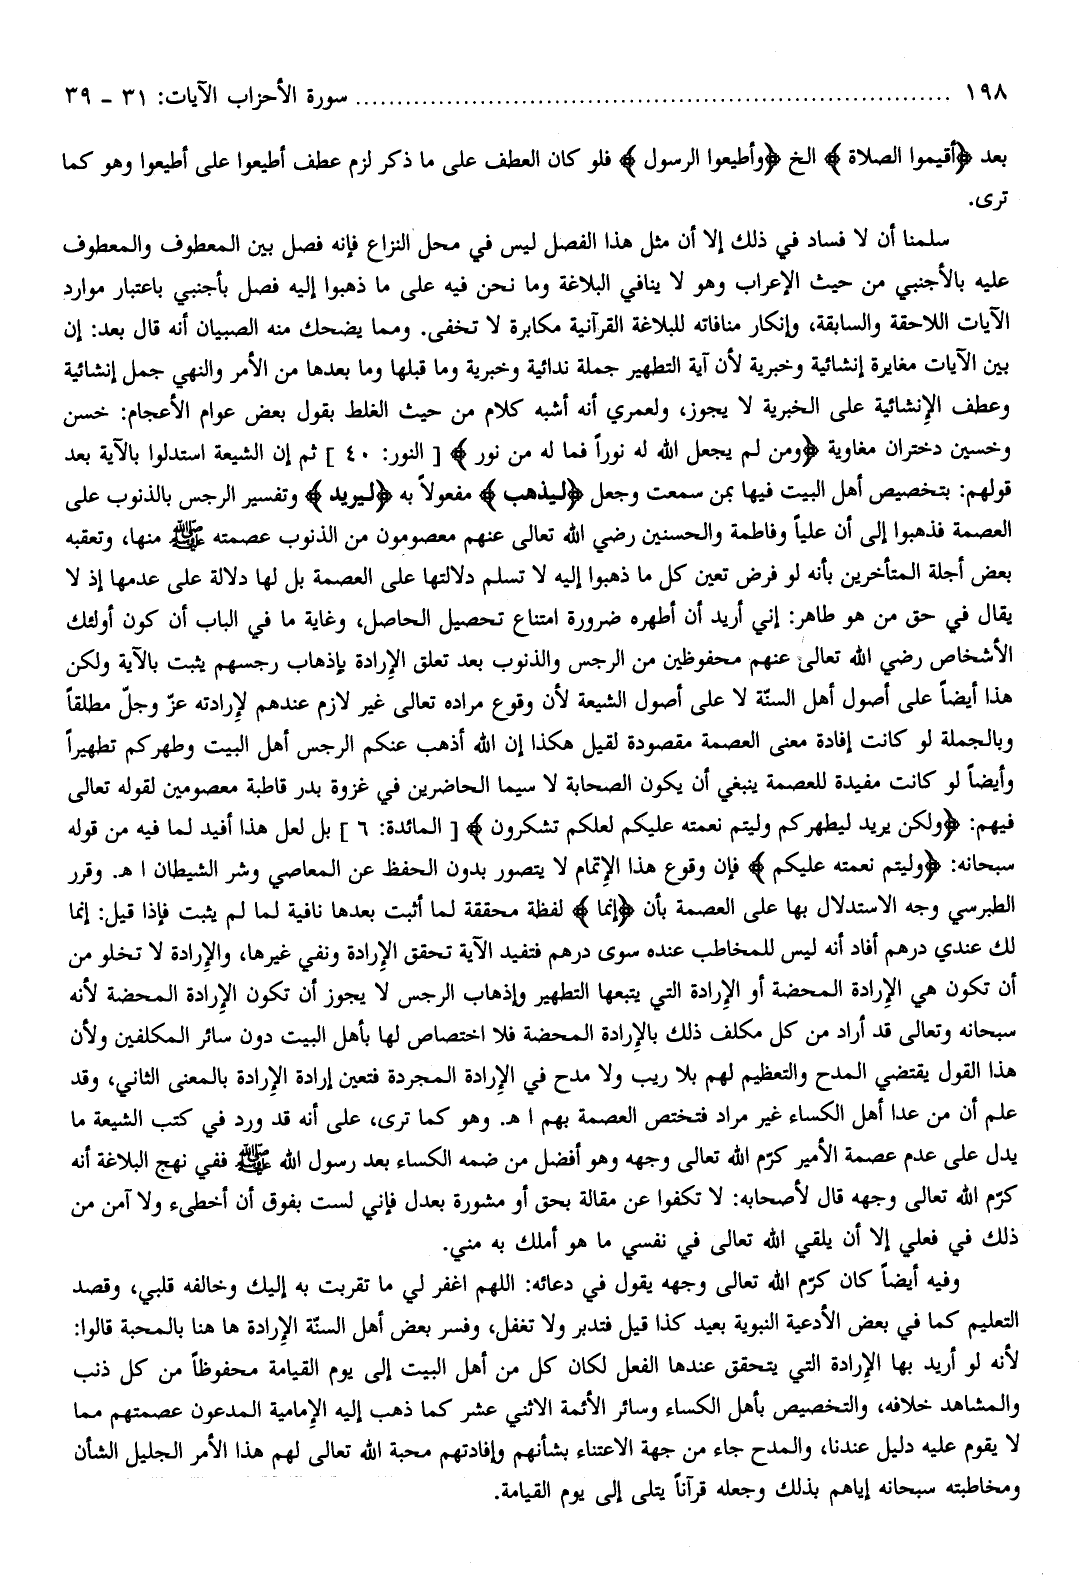 ١٩٨ ........................................................................ سورة الأحزاب الآيات: ٣١ - ٣٩
بعد ﴿أقيموا الصلاة﴾ الخ ﴿وأطيعوا الرسول﴾ فلو كان العطف على ما ذكر لزم عطف أطيعوا على أطيعوا وهو كما
ترى.
سلمنا أن لا فساد في ذلك إلا أن مثل هذا الفصل ليس في محل النزاع فإنه فصل بين المعطوف والمعطوف
عليه بالأجنبي من حيث الإعراب وهو لا ينافي البلاغة وما نحن فيه على ما ذهبوا إليه فصل بأجنبي باعتبار موارد
الآيات اللاحقة والسابقة، وإنكار منافاته للبلاغة القرآنية مكابرة لا تخفى. ومما يضحك منه الصبيان أنه قال بعد: إن
بين الآيات مغايرة إنشائية وخبرية لأن آية التطهير جملة ندائية وخبرية وما قبلها وما بعدها من الأمر والنهي جمل إنشائية
وعطف الإنشائية على الخبرية لا يجوز، ولعمري أنه أشبه كلام من حيث الغلط بقول بعض عوام الأعجام: خسن
وخسين دختران مغاوية ﴿ومن لم يجعل الله له نوراً فما له من نور﴾ [ النور: ٤٠ ] ثم إن الشيعة استدلوا بالآية بعد
قولهم: بتخصيص أهل البيت فيها بمن سمعت وجعل ﴿ليذهب﴾ مفعولاً به ﴿ليريد﴾ وتفسير الرجس بالذنوب على
العصمة فذهبوا إلى أن علياً وفاطمة والحسنين رضي الله تعالى عنهم معصومون من الذنوب عصمته ﷺ منها، وتعقبه
بعض أجلة المتأخرين بأنه لو فرض تعين كل ما ذهبوا إليه لا تسلم دلالتها على العصمة بل لها دلالة على عدمها إذ لا
يقال في حق من هو طاهر: إني أريد أن أطهره ضرورة امتناع تحصيل الحاصل، وغاية ما في الباب أن كون أولئك
الأشخاص رضي الله تعالى عنهم محفوظين من الرجس والذنوب بعد تعلق الإرادة بإذهاب رجسهم يثبت بالآية ولكن
هذا أيضاً على أصول أهل السنّة لا على أصول الشيعة لأن وقوع مراده تعالى غير لازم عندهم لإرادته عزّ وجلّ مطلقاً
وبالجملة لو كانت إفادة معنى العصمة مقصودة لقيل هكذا إن الله أذهب عنكم الرجس أهل البيت وطهركم تطهيراً
وأيضاً لو كانت مفيدة للعصمة ينبغي أن يكون الصحابة لا سيما الحاضرين في غزوة بدر قاطبة معصومين لقوله تعالى
فيهم: ﴿ولكن يريد ليطهركم وليتم نعمته عليكم لعلكم تشكرون﴾ [ المائدة: ٦ ] بل لعل هذا أفيد لما فيه من قوله
سبحانه: ﴿وليتم نعمته عليكم﴾ فإن وقوع هذا الإتمام لا يتصور بدون الحفظ عن المعاصي وشر الشيطان ا هـ. وقرر
الطبرسي وجه الاستدلال بها على العصمة بأن ﴿إنما﴾ لفظة محققة لما أثبت بعدها نافية لما لم يثبت فإذا قيل: إنما
لك عندي درهم أفاد أنه ليس للمخاطب عنده سوى درهم فتفيد الآية تحقق الإرادة ونفي غيرها، والإرادة لا تخلو من
أن تكون هي الإرادة المحضة أو الإرادة التي يتبعها التطهير وإذهاب الرجس لا يجوز أن تكون الإرادة المحضة لأنه
سبحانه وتعالى قد أراد من كل مكلف ذلك بالإرادة المحضة فلا اختصاص لها بأهل البيت دون سائر المكلفين ولأن
هذا القول يقتضي المدح والتعظيم لهم بلا ريب ولا مدح في الإرادة المجردة فتعين إرادة الإرادة بالمعنى الثاني، وقد
علم أن من عدا أهل الكساء غير مراد فتختص العصمة بهم ا هـ. وهو كما ترى، على أنه قد ورد في كتب الشيعة ما
يدل على عدم عصمة الأمير كرّم الله تعالى وجهه وهو أفضل من ضمه الكساء بعد رسول الله ﷺ ففي نهج البلاغة أنه
كرّم الله تعالى وجهه قال لأصحابه: لا تكفوا عن مقالة بحق أو مشورة بعدل فإني لست بفوق أن أخطىء ولا آمن من
ذلك في فعلي إلا أن يلقي الله تعالى في نفسي ما هو أملك به مني.
وفيه أيضاً كان كرّم الله تعالى وجهه يقول في دعائه: اللهم اغفر لي ما تقربت به إليك وخالفه قلبي، وقصد
التعليم كما في بعض الأدعية النبوية بعيد كذا قيل فتدبر ولا تغفل، وفسر بعض أهل السنّة الإرادة ها هنا بالمحبة قالوا:
لأنه لو أريد بها الإرادة التي يتحقق عندها الفعل لكان كل من أهل البيت إلى يوم القيامة محفوظاً من كل ذنب
والمشاهد خلافه، والتخصيص بأهل الكساء وسائر الأئمة الاثني عشر كما ذهب إليه الإمامية المدعون عصمتهم مما
لا يقوم عليه دليل عندنا، والمدح جاء من جهة الاعتناء بشأنهم وإفادتهم محبة الله تعالى لهم هذا الأمر الجليل الشأن
ومخاطبته سبحانه إياهم بذلك وجعله قرآناً يتلى إلى يوم القيامة.